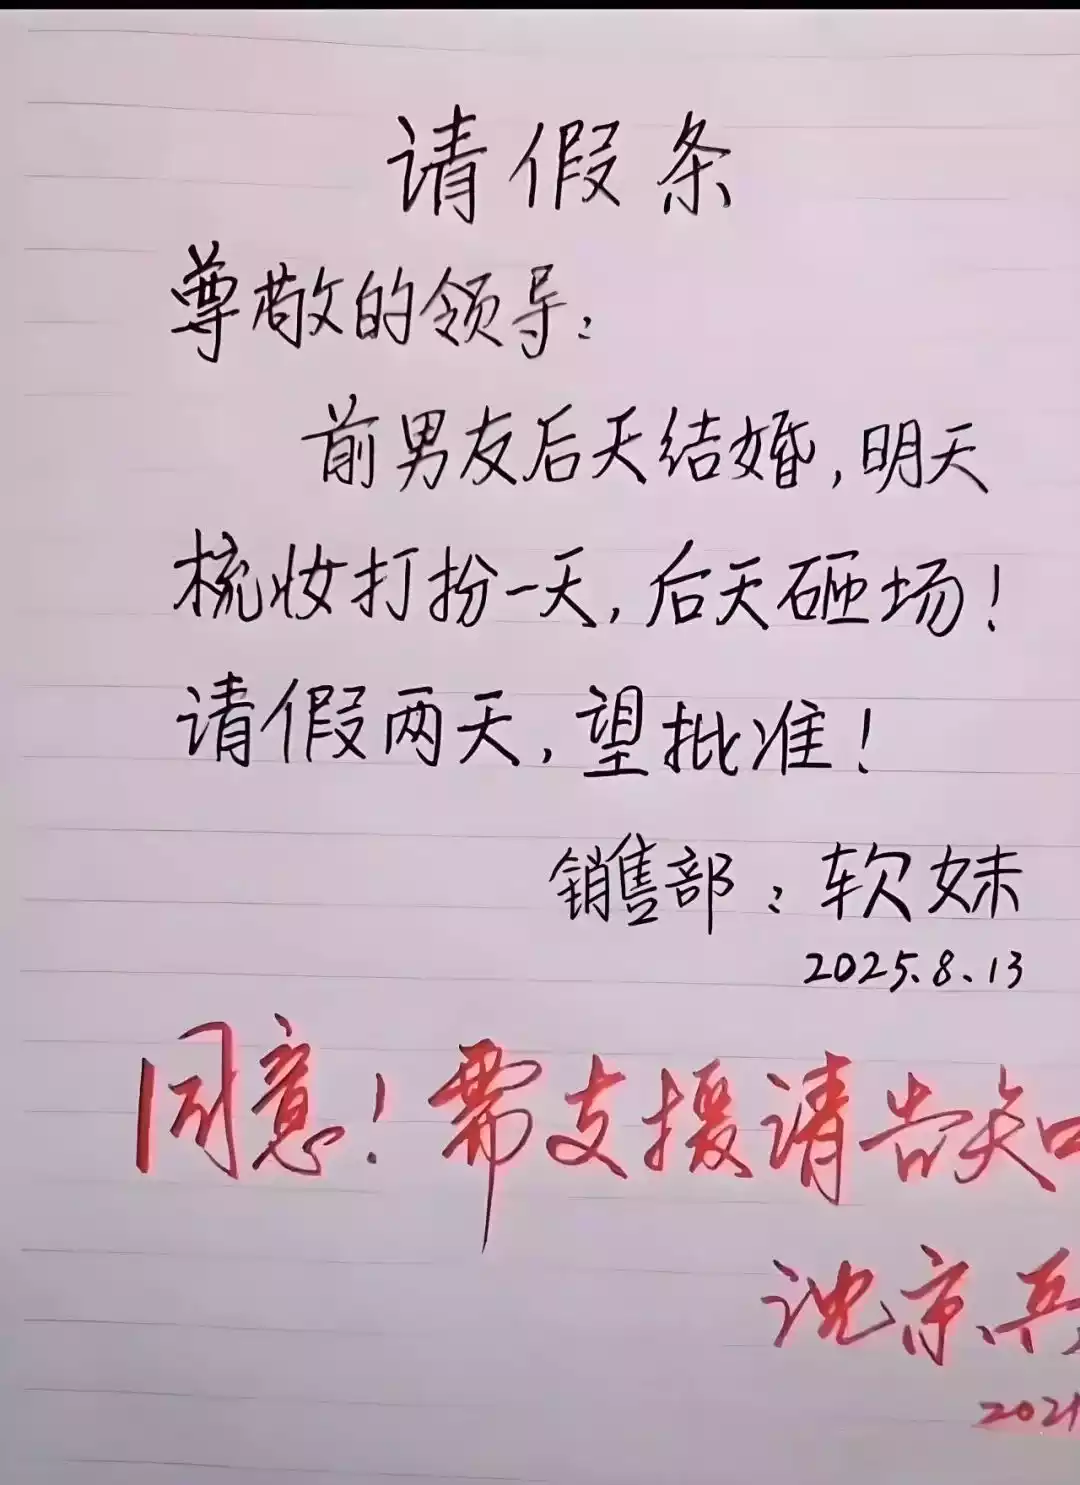 请假条
尊敬的领导：
前男友后天结婚，明天
梳妆打扮一天，后天砸场！
请假两天，望批准！
销售部：软妹
2025.8.13
同意！需支援请告知
沈京兵
202